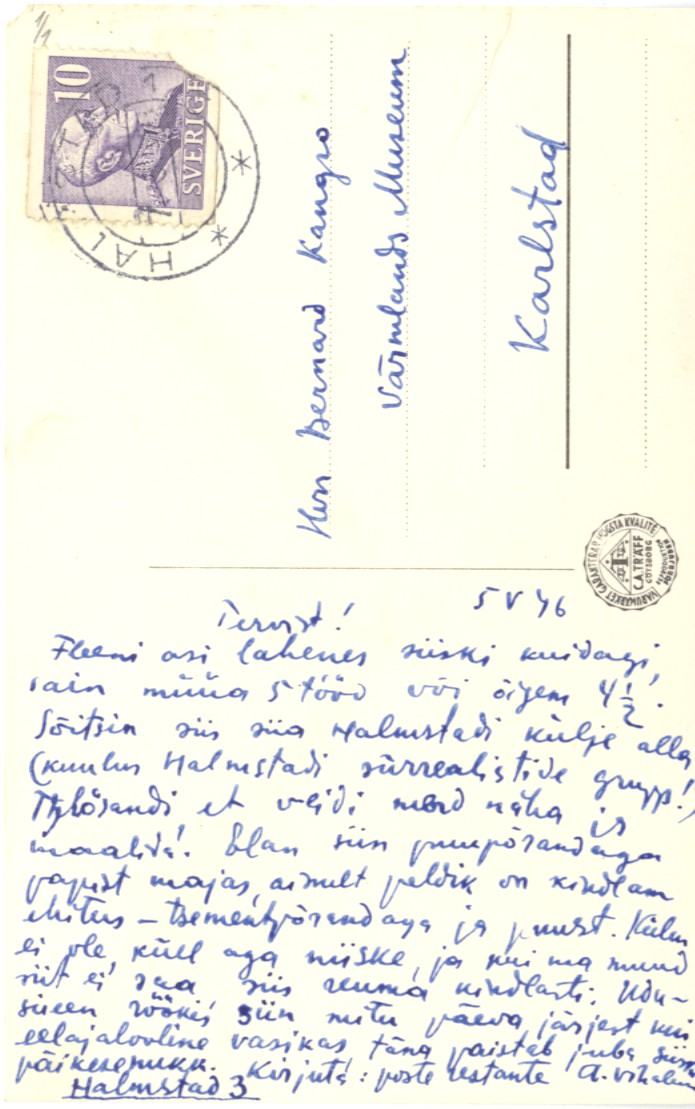 1/1
10
SVERIGE
HALMSTAD
Herr Bernard Kangro
Värmlands Museum
Karlstad
VARUMÄRKET GARANTERAR HÖGSTA KVALITÉ
C.A. TRÄFF
GÖTEBORG
5 V 46
Tervist!
Fleeni asi lahenes siiski kuidagi,
sain müüa 5 tööd või õigem 4 1/2.
Sõitsin siis siia Halmstadi külje alla
(kuulus Halmstadi sürrealistide grupp!)
Tylösandi et veidi merd näha ja
maalida! Elan siin puupõrandaga
papist majas, ainult peldik on kindlam
ehitus – tsementpõrandaga ja puust. Külm
ei ole, küll aga niiske, ja kui ma muud
siit ei saa siis reuma kindlasti. Udu-
sireen röökis siin mitu päeva järjest kui
eelajalooline vasikas täna paistab juba siiski
päikesenukk. Kirjuta: poste restante A. Vihalem
Halmstad 3